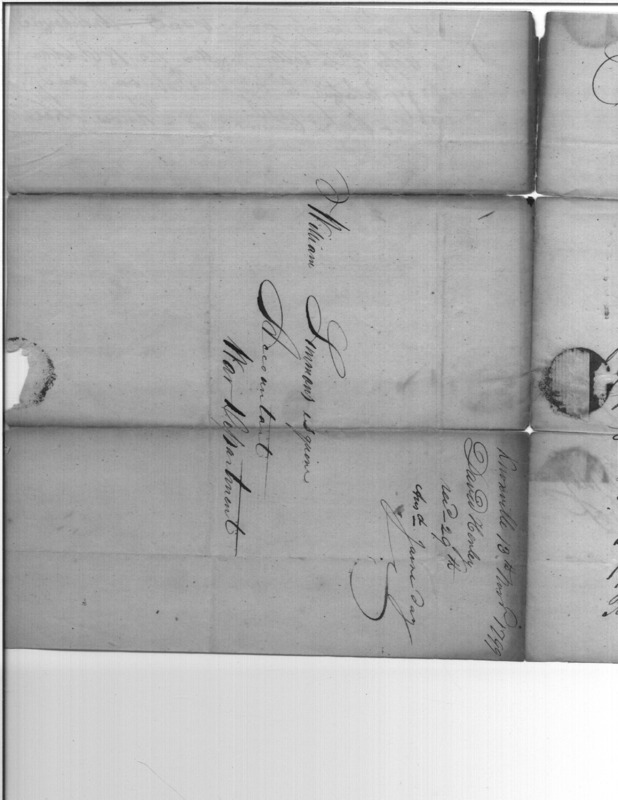 William Simmons esquire
Accountant
War Department
Knoxville 13th Novr 1799
David Henley
recd 29th
Ansd Same day